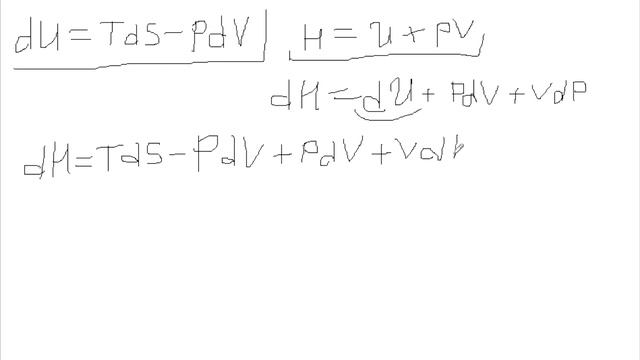 dU = TdS - PdV H = U + PV
dH = dU + PdV + VdP
dH = TdS - PdV + PdV + Vd